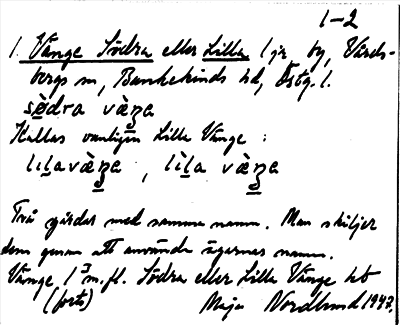 1-2
1. Vånge Södra eller Lilla 1 jr, by, Värds-
bergs sn, Bankekinds hd, Östg. l.
sø̀dra væ̀ŋa
Kallas vanligen Lilla Vånge :
lılavæ̀ŋa , lìla væ̀ŋa
Två gårdar med samma namn. Man skiljer
dem genom att använda ägarnas namn.
Vånge, 1³ m.fl. Södra eller Lilla Vånge
(forts) Maja Nordlund 1947.